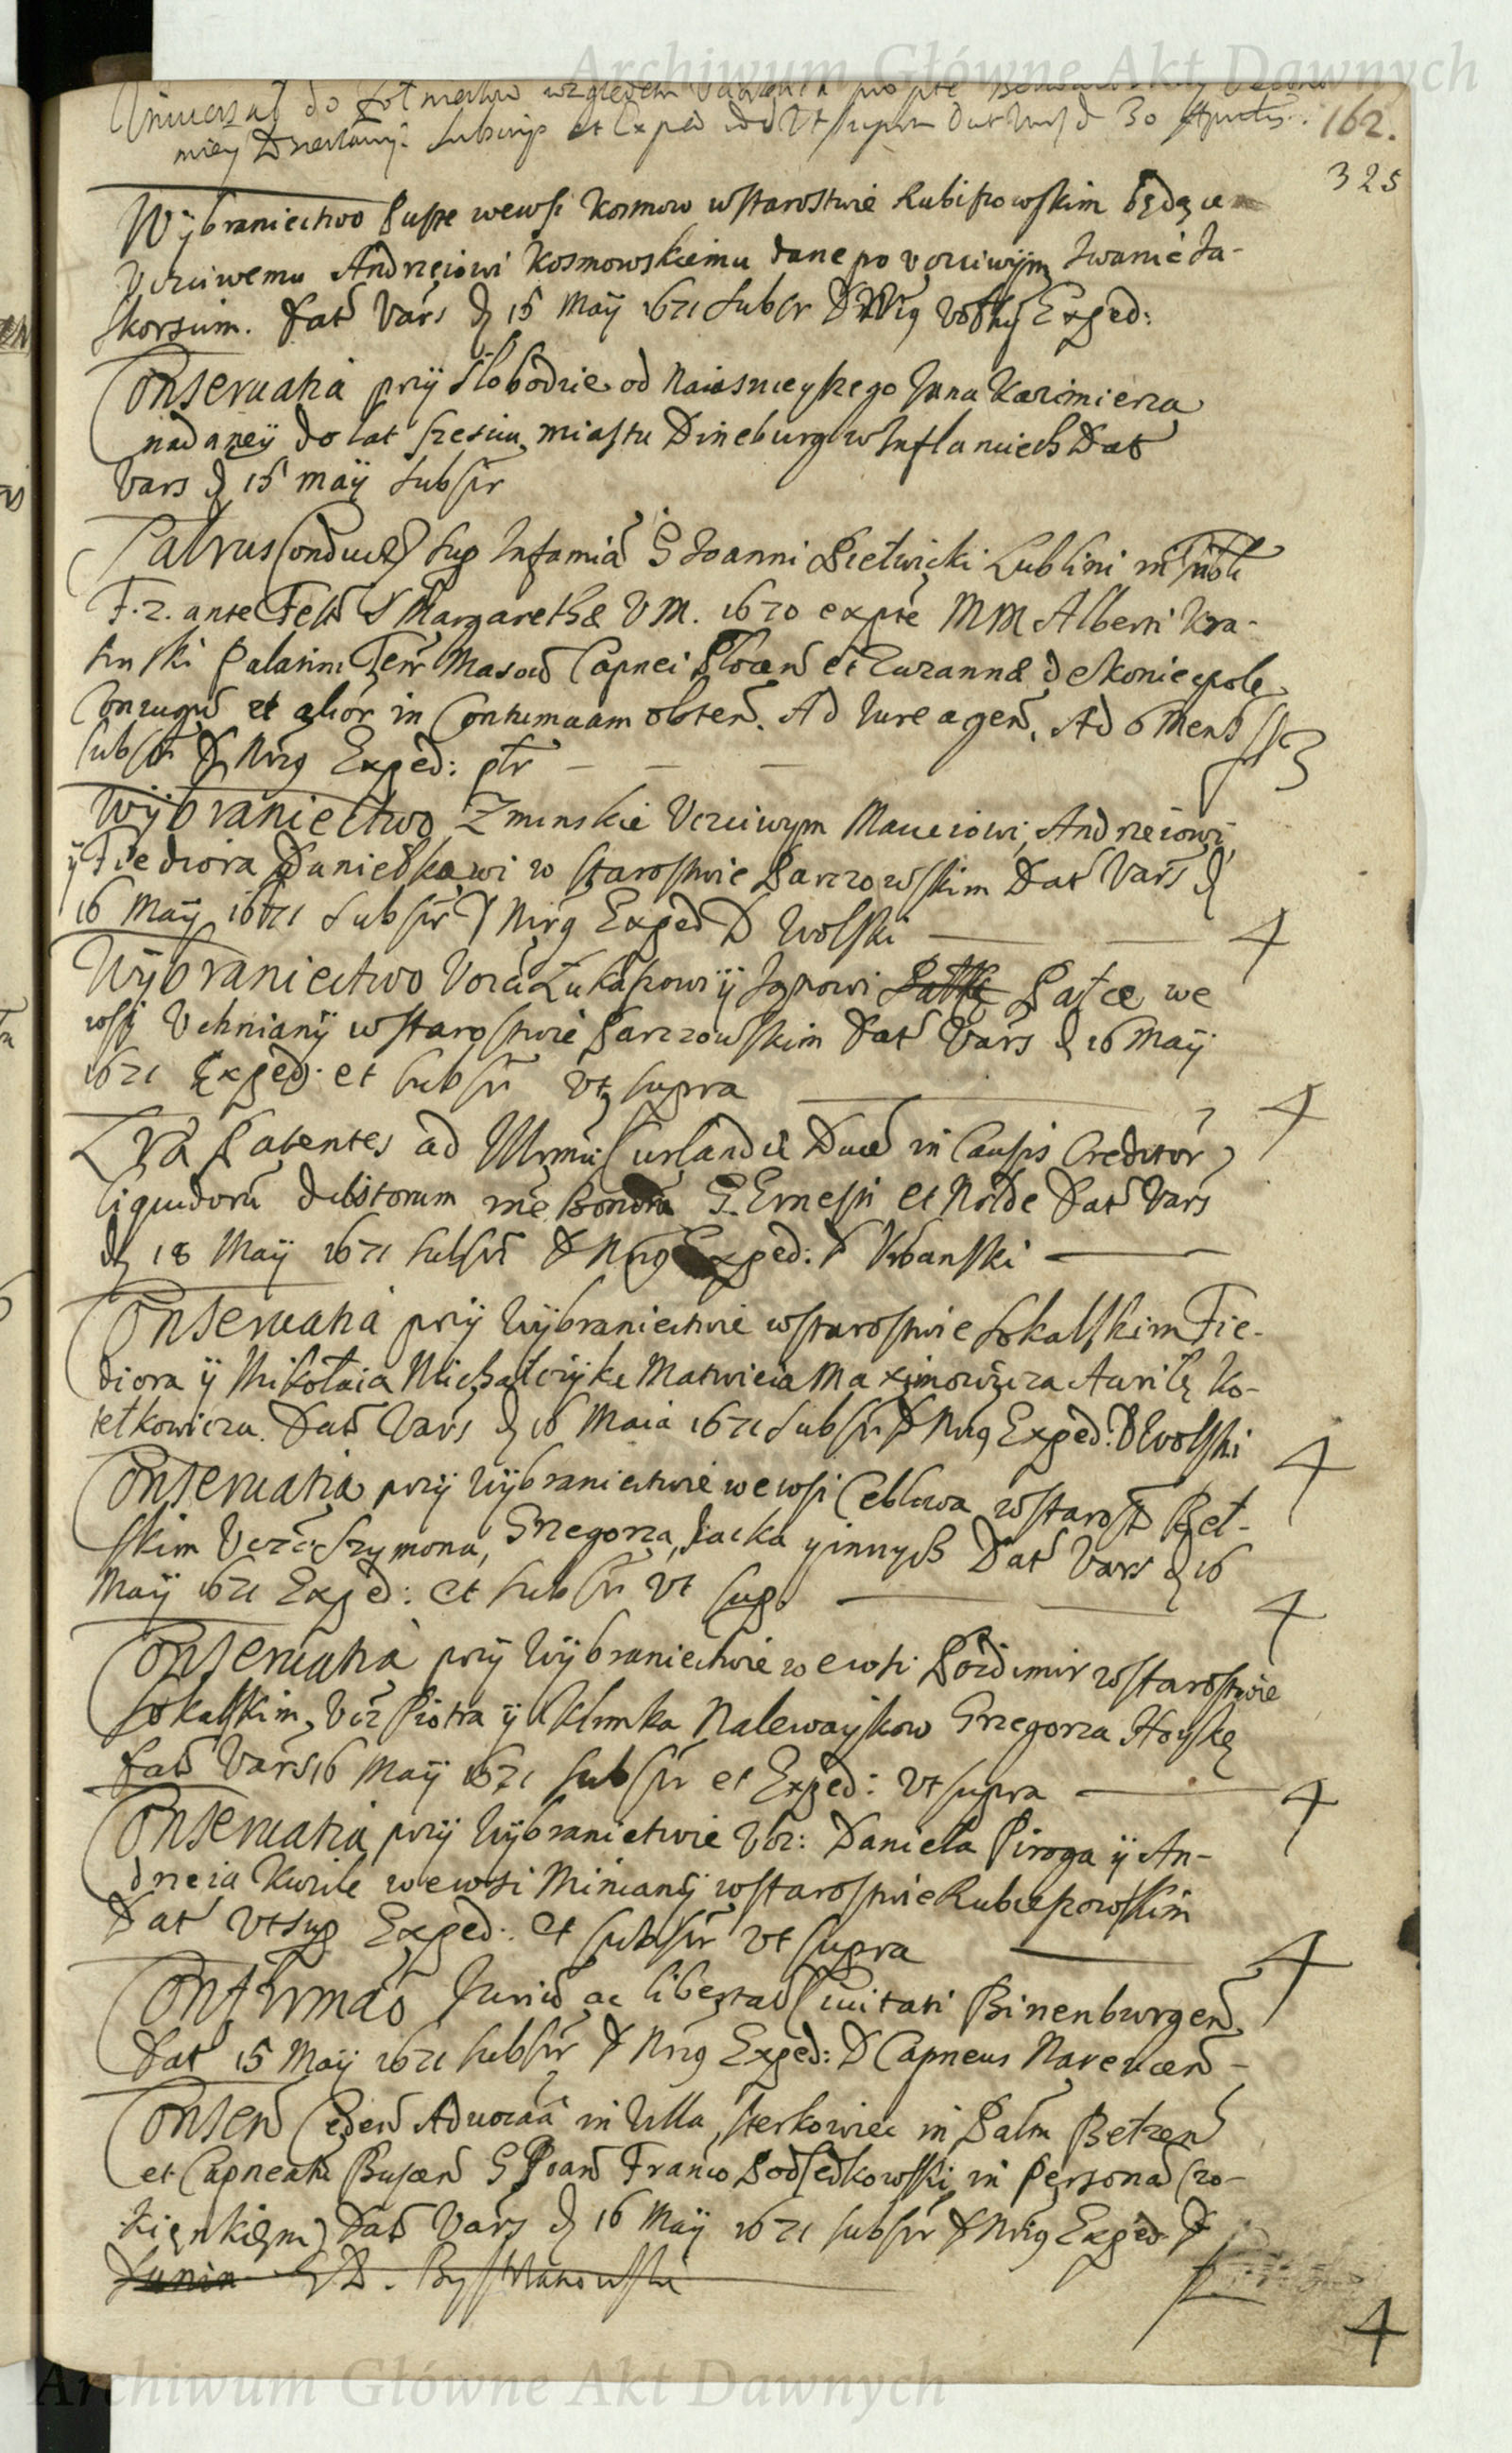 Archiwum Główne Akt Dawnych
Uniwersał do Żołnierstwa względem
miey Dzierżawy. Subscrip et Exped ut supra Dat Vars d 30 Aprilis. 162.
325
Wÿbraniectwo puste wewsi Kosmow wstarostwie Rubiszowskim będące
Vcziwemu Andrzeiowi Kosmowskiemu dane po vcziwÿm Iwanie Ia-
skorsum. Dat Vars D 15 Maÿ 1671 Subsr D Nrig Wolskÿ Exped:
Conseruatia przÿ Słobodzie od Naiasnieyszego Jana Kazimierza
nadaneÿ do lat szesciu miastu Dineburg w Inflanciech Dat
Vars D 15 maÿ Subsr
Salvus Conduct Sup Infamia G Joanni Sietwicki Lublini in Tribli
F. 2. ante Fest S Margarethæ V M. 1670 ex pte MM Alberti Kra-
sinski Palatini Terr Masov Capnei Plocen et Zuzannæ de Koniecpole
Coniugu et alior in Contumaciam obten. Ad Iure agen. Ad 6 Mens
Subscr D Nrig Exped: ptr — — — 3
Wÿbraniectwo Zminskie Vcziwym Macieiowi, Andrzeiowi,
ÿ Fiediora Danielkowi w starostwie Parczowskim Dat Vars D
16 Maÿ 1671 Subsr D Nrig Exped D Wolski — — 4
Wÿbraniectwo Vcziw Łukaszowi ÿ Iacowi Pałce we
wsÿ Uchnianÿ w starostwie Parczowskim Dat Vars D 16 Maÿ
1671 Exped: et Subsr Vt supra — 4
Lra Patentes ad Illrmu Curlandiæ Duce in Causis Creditor
liquidoru debitorum rne Bonoru G. Ernesti et Nolde Dat Vars
D 18 Maÿ 1671 Subsr D Nrig Exped: D Vrbanski —
Conseruatia przÿ Wÿbraniectwie wstarostwie Sokalskim Fie-
diora ÿ Mikołaia Michałczÿka Matwieia Maximowicza Awriłę Ko-
tełkowicza. Dat Vars D 16 Maia 1671 Subsr D Nrig Exped: D Wolski 4
Conseruatia przÿ Wÿbraniectwie wewsi Ceblowa wstarost Beł-
skim Vczc: Szymona, Grzegorza, Jacka ÿ innych Dat Vars D 16
Maÿ 1671 Exped: et Subsr Vt sup. — 4
Conseruatia przÿ Wÿbraniectwie wewsi Pozdimir wstarostwie
Sokalskim, Vcz Piotra ÿ Klimka Nalewaÿkow Grzegorza Hoÿkę
Dat Vars 16 Maÿ 1671 Subsr et Exped: Vt supra — 4
Conseruatia przÿ Wÿbraniectwie Vcz: Daniela Piroga ÿ An-
drzeia Kuriłe wewsi Minianÿ wstarostwie Rubieszowskim
Dat Vt sup Exped: et Subsr Vt supra — 4
Confirmao Iuriu ac libertat Ciuitati Binenburgen
Dat 15 Maÿ 1671 Subsr D Nrig Exped: D Capneus Narevcen —
Consen Ceden Aduocaa in Villa, Sterkowiec in Palm Bełzen
et Capneatu Buscen G Joan Franco Podsedkowski in persona Cro-
kienkiem Dat Vars D 16 Maÿ 1671 Subsr D Nrig Exped D
D. Bystrzanowski
4
Archiwum Główne Akt Dawnych